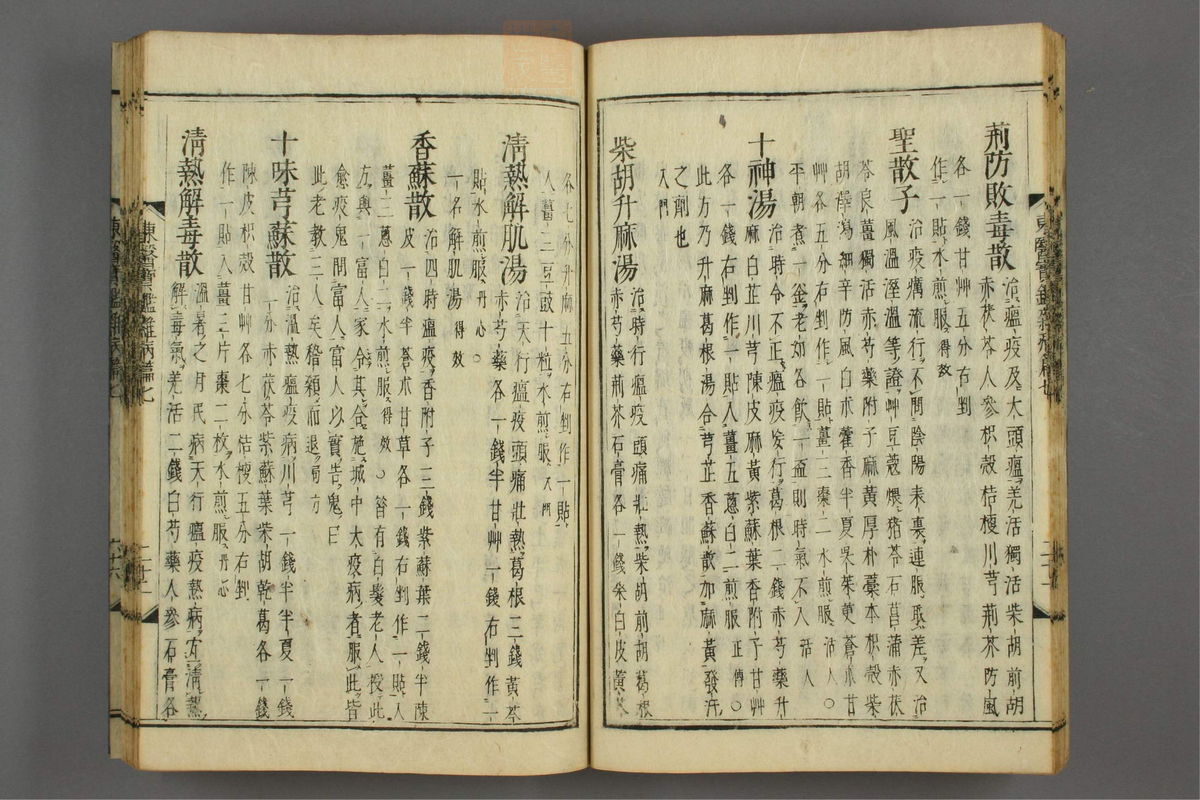 荊防敗毒散治瘟疫及大頭瘟羌活獨活柴胡前胡
赤茯苓人參枳殼桔梗川芎荊芥防風
各一錢甘艸五分右剉
作一貼水煎服得效
聖散子治疫癘流行不問陰陽表裏連服取差又治
風溫溼溫等證艸豆蔲煨猪苓石菖蒲赤茯
苓良薑獨活赤芍藥附子麻黃厚朴藁本枳殼柴
胡澤瀉細辛防風白朮藿香半夏吳茱萸蒼朮甘
艸各五分右剉作一貼薑三棗二水煎服活人○
平朝煮一釜老如各飮一盃則時氣不入活人
十神湯治時令不正瘟疫妄行葛根二錢赤芍藥升
麻白芷川芎陳皮麻黃紫蘇葉香附子甘艸
各一錢右剉作一貼入薑五蔥白二煎服正傳○
此方乃升麻葛根湯合芎芷香蘇散加麻黃發汗
之劑也
入門
柴胡升麻湯治時行瘟疫頭痛壯熱柴胡前胡葛根
赤芍藥荊芥石膏各一錢桑白皮黃芩
各七分升麻五分右剉作一貼
入薑三豆豉十粒水煎服入門
淸熱解肌湯治天行瘟疫頭痛壯熱葛根三錢黃芩
赤芍藥各一錢半甘艸一錢右剉作一
貼水煎服丹心○
一名解肌湯得效
香蘇散治四時瘟疫香附子三錢紫蘇葉二錢半陳
皮一錢半蒼朮甘草各一錢右剉作一貼入
薑三蔥白二水煎服得效○昝有白髮老人授此
方與一富人家合其合施城中大疫病者服此皆
愈疫鬼問富人富人以實告鬼曰
此老教三人矣稽顙而退局方
十味芎蘇散治溫熱瘟疫病川芎一錢半半夏一錢
一分赤茯苓紫蘇葉柴胡乾葛各一錢
陳皮枳殼甘艸各七分桔梗五分右剉
作一貼入薑三片棗二枚水煎服丹心
淸熱解毒散溫暑之月民病天行瘟疫熱病宜淸熱
解毒氣羌活二錢白芍藥人參石膏各
東醫寶鑑雜病篇七
東醫寶鑑雜病篇七
二十六